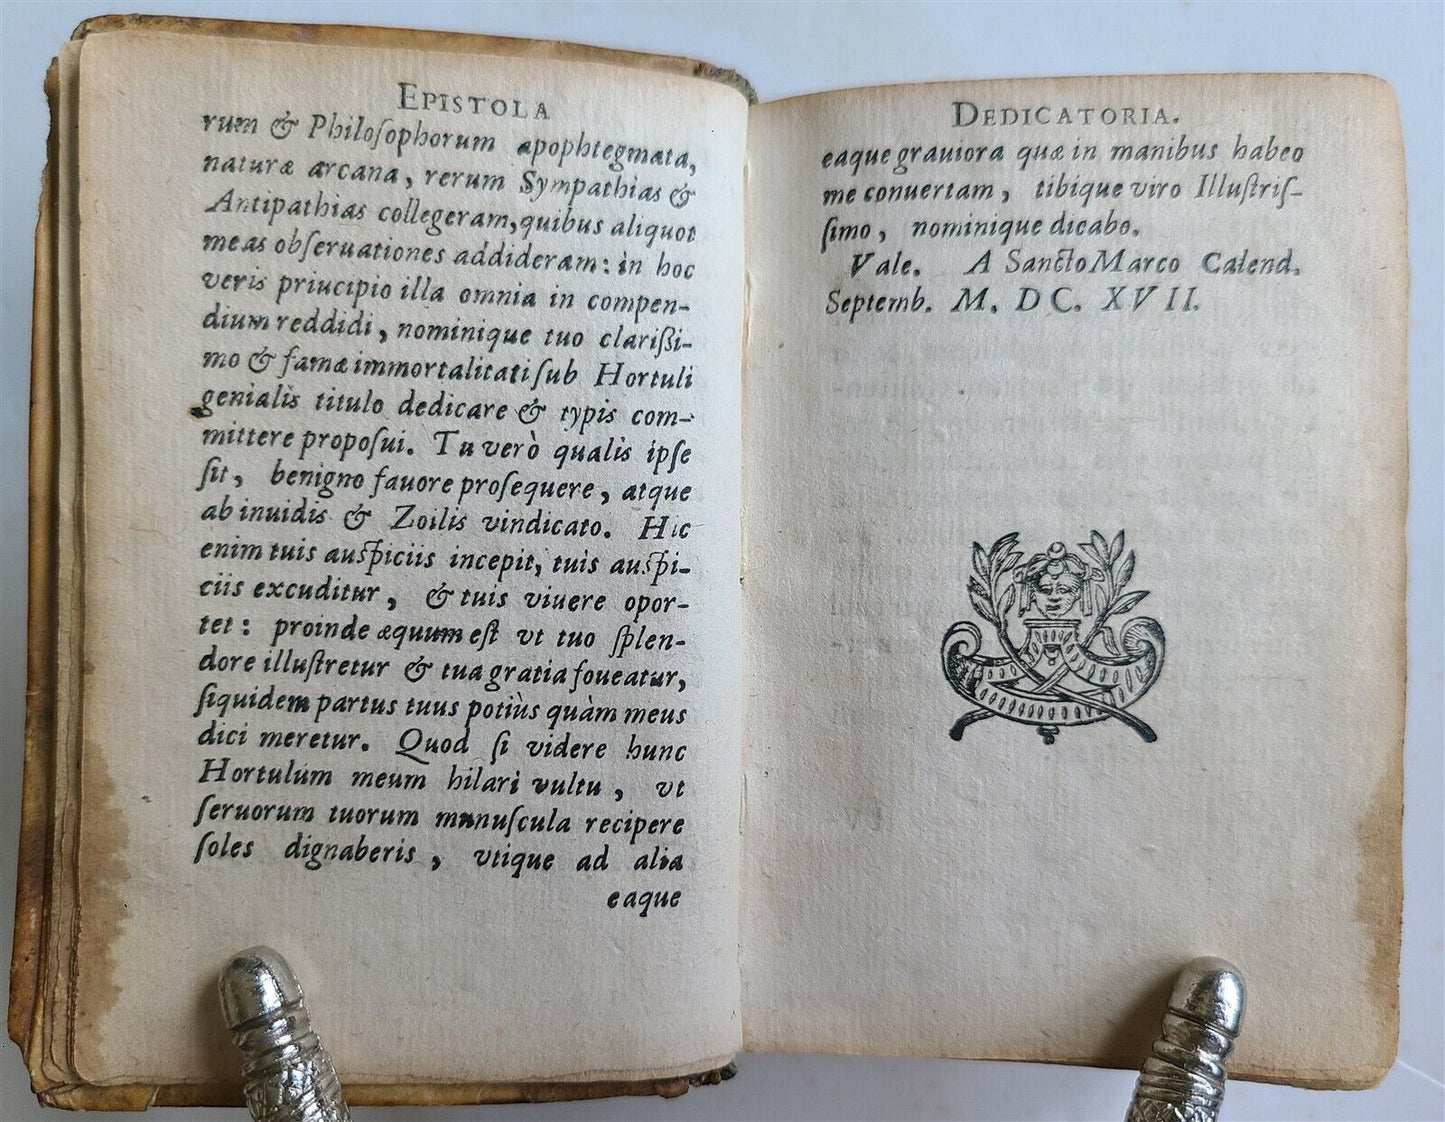 EPISTOLA
rum & Philoſophorum apophtegmata,
naturæ arcana, rerum Sympathias &
Antipathias collegeram, quibus aliquot
meas obſeruationes addideram: in hoc
veris priucipio illa omnia in compen-
dium reddidi, nominique tuo clarißi-
mo & famæ immortalitati ſub Hortuli
genialis titulo dedicare & typis com-
mittere propoſui. Tu verò qualis ipſe
ſit, benigno fauore proſequere, atque
ab inuidis & Zoilis vindicato. Hic
enim tuis auſpiciis incepit, tuis auſpi-
ciis excuditur, & tuis viuere opor-
tet: proinde æquum eſt vt tuo ſplen-
dore illuſtretur & tua gratia foueatur,
ſiquidem partus tuus potiùs quàm meus
dici meretur. Quod ſi videre hunc
Hortulum meum hilari vultu, vt
ſeruorum tuorum munuſcula recipere
ſoles dignaberis, vtique ad alia
eaque
DEDICATORIA.
eaque grauiora quæ in manibus habeo
me conuertam, tibique viro Illuſtriſ-
ſimo, nominique dicabo.
Vale. A Sancto Marco Calend.
Septemb. M. DC. XVII.